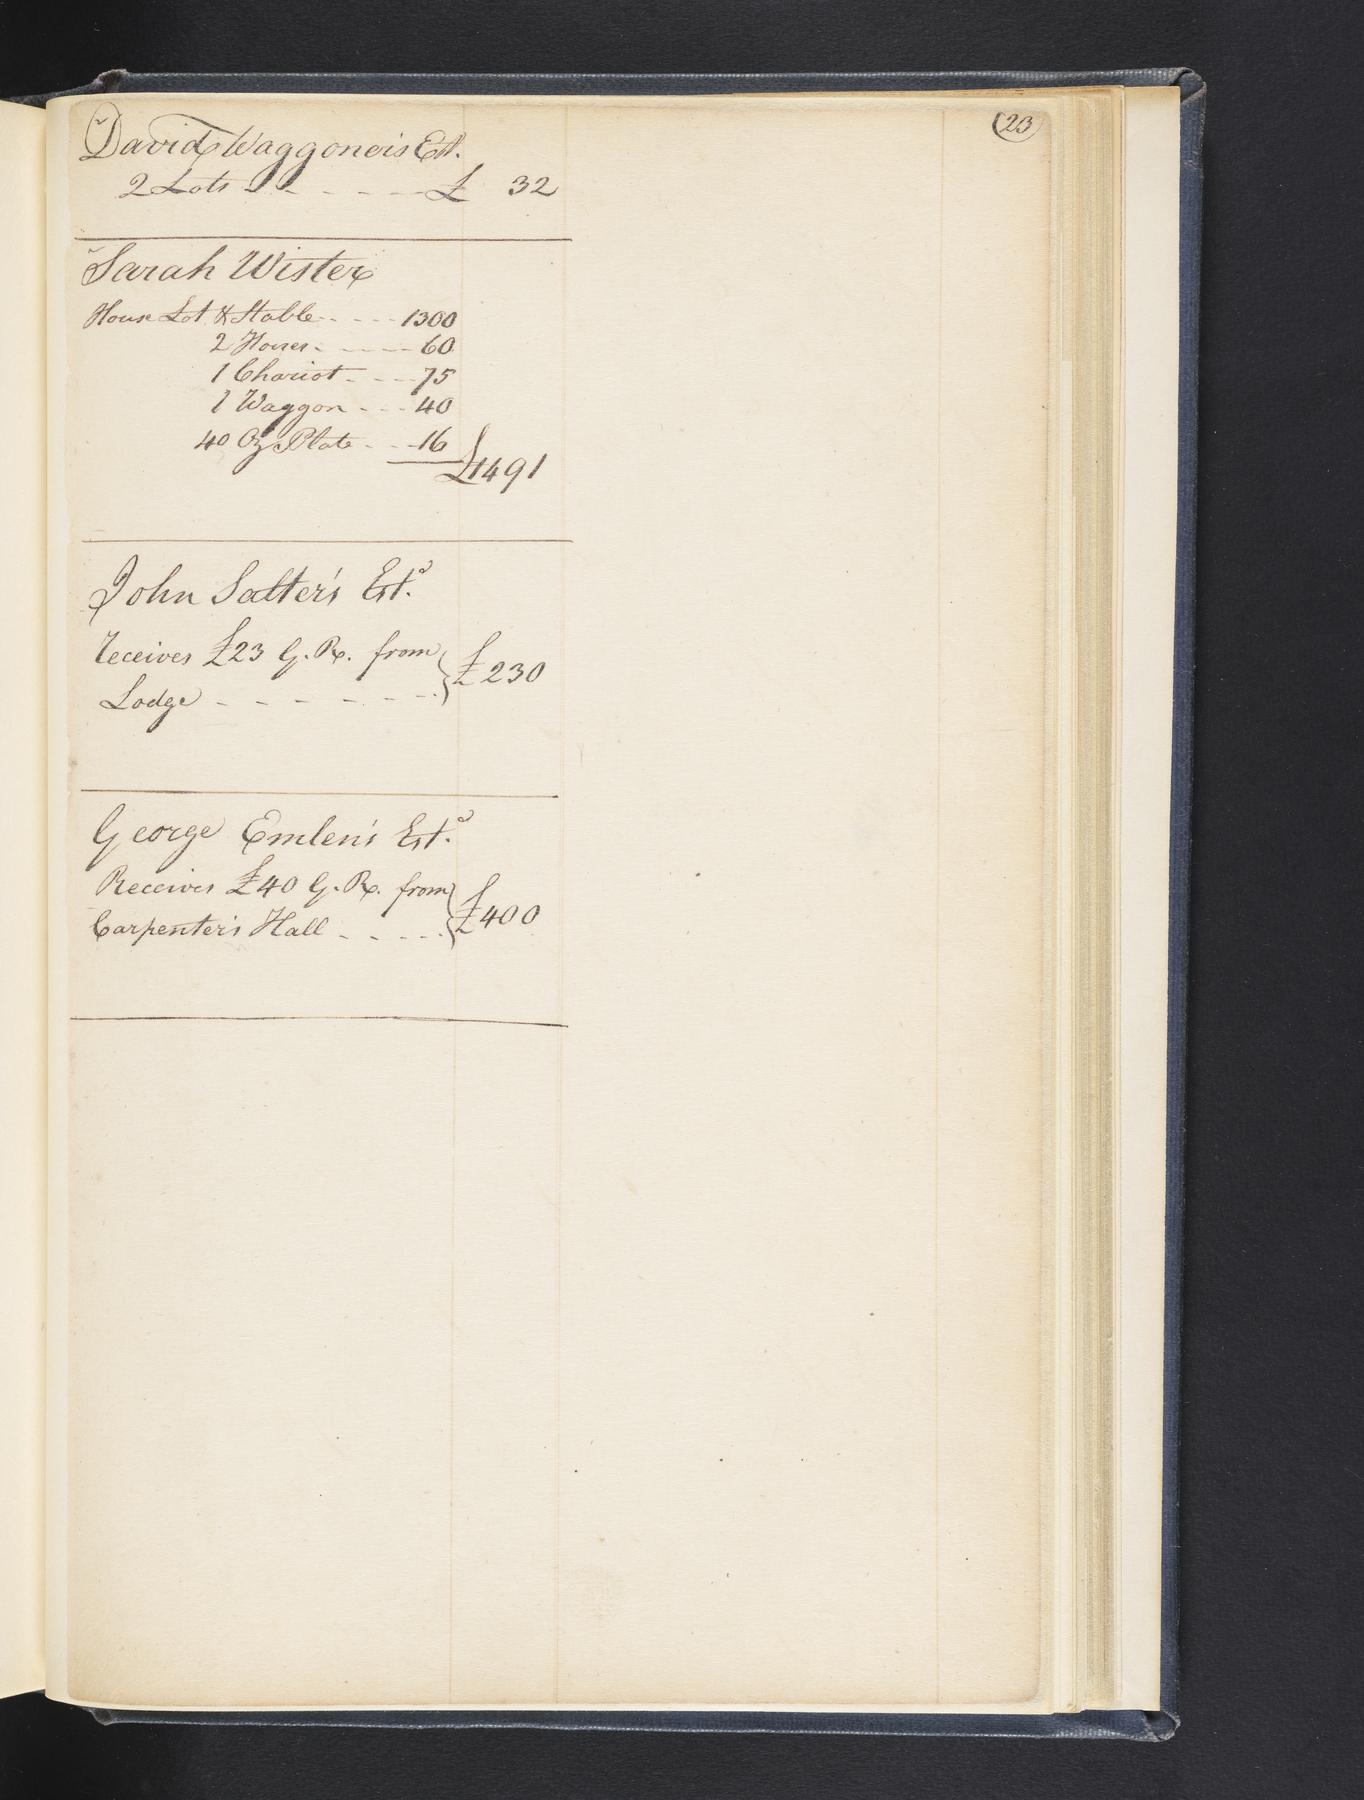 (23)
David Waggoner's Est.
2 Lots - - - - - £ 32
Sarah Wister
House Lot & Stable - - - - 1300
2 Horses - - - - - 60
1 Chariot - - - - 75
1 Waggon - - - 40
40 Oz Plate - - - 16
£1491
John Salter's Est.ᵃ
receives £23 G. R. from
Lodge - - - - - - } £230
George Emlen's Est.ᵃ
Receives £40 G. R. from
Carpenter's Hall - - - - - } £400